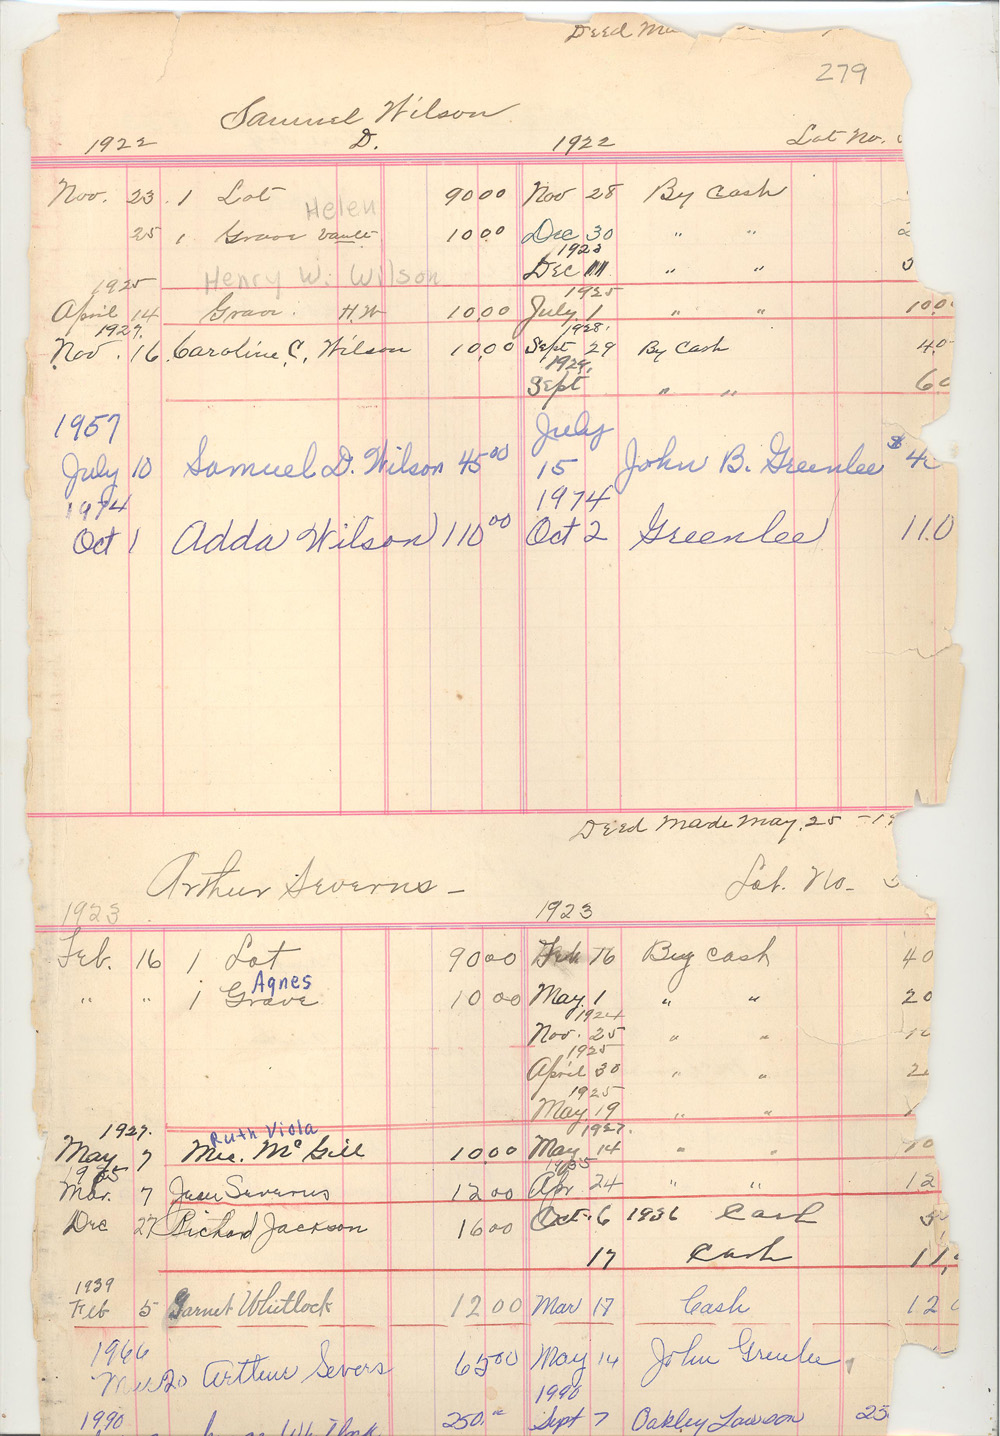 Deed Ma
279
Samuel Wilson
1922 D. 1922 Lot No.
Nov. 23 1 Lot 90 00 Nov 28 By Cash
Helen
25 1 Grave Vault 10 00 Dec 30 " "
1923
Henry W. Wilson Dec 11 " "
1925 1925
April 14 Grave. H.W 10.00 July 1 " " 10 0
1927. 1928.
Nov. 16 Caroline C. Wilson 10 00 Sept 29 By Cash 4 0
1929.
Sept " " 6 0
1957 July
July 10 Samuel D. Wilson 45 00 15 John B. Greenlee $ 4
1974 1974
Oct 1 Adda Wilson 110 00 Oct 2 Greenlee 11.0
Deed Made May. 25 - 19
Arthur Severns - Lot. No-
1923 1923
Feb. 16 1 Lot 90 00 Feb 16 By Cash 4 0
Agnes
" " 1 Grave 10 00 May. 1 " " 2 0
1924
Nov. 25 " "
1925
April 30 " "
1925
May 19 " "
1927. Ruth Viola 1927.
May 7 Mrs. McGill 10 00 May 14 " " 10
1935 1935
Mar. 7 Severns 12 00 Apr 24 " " 12
Dec 27 Richard Jackson 16 00 Oct. 6 1936 Cash
17 Cash 11,
1939
Feb 5 Garnet Whitlock 12 00 Mar 17 Cash 12 0
1966
20 Arthur Severs 65 00 May 14 John Greenlee
1990
1990 250. Sept 7 Oakley Lawson 25